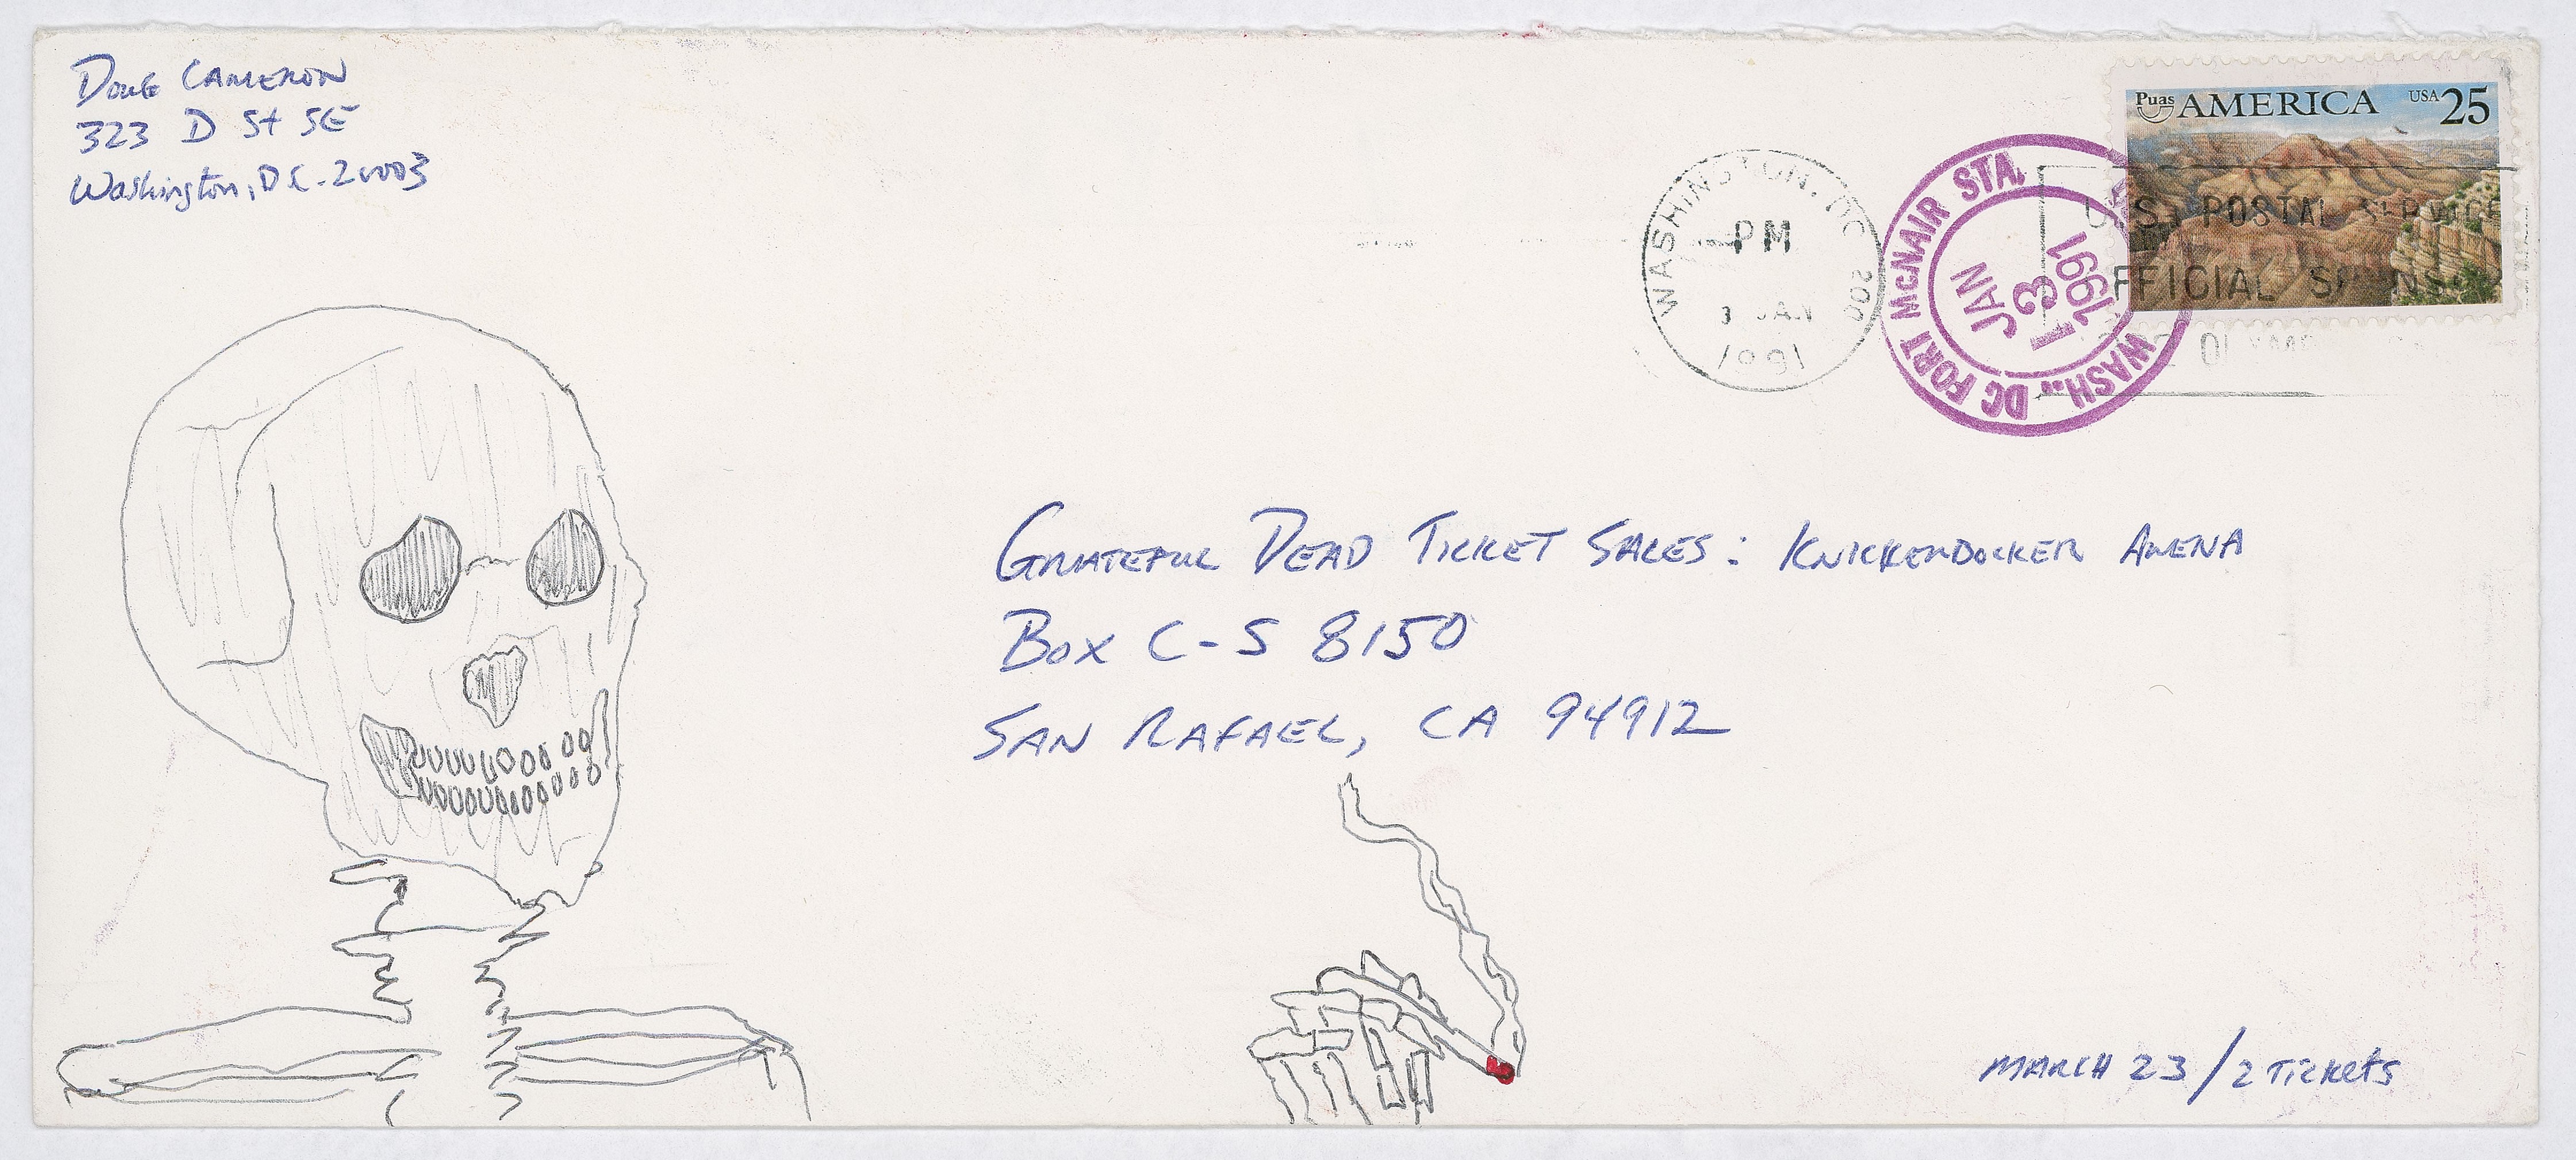 Doug Cameron
323 D St SE
Washington, D.C. 20003
Puas AMERICA USA 25
WASHINGTON, DC 200
PM
JAN
1991
WASH., DC FORT McNAIR STA.
JAN
13
1991
U.S. POSTAL SERVICE
OFFICIAL
Grateful Dead Ticket Sales: Knickerbocker Arena
Box C-S 8150
San Rafael, CA 94912
March 23 / 2 Tickets